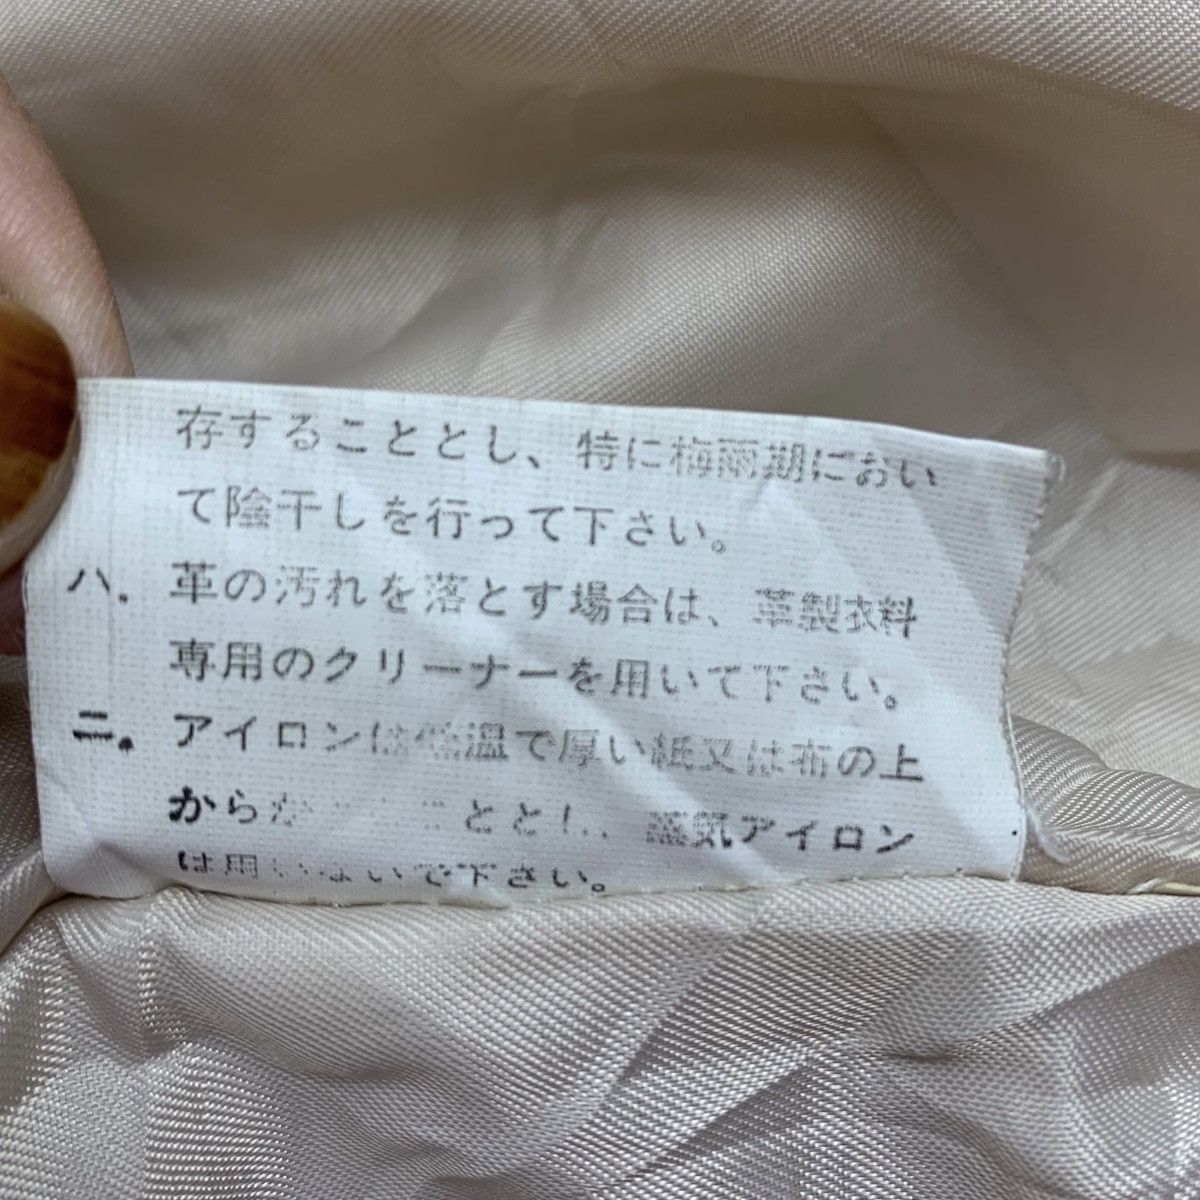 存することとし、特に梅雨期におい
て陰干しを行って下さい。
ハ. 革の汚れを落とす場合は、革製衣料
専用のクリーナーを用いて下さい。
ニ. アイロンは低温で厚い紙又は布の上
から ととし、蒸気アイロン
は用いないで下さい。